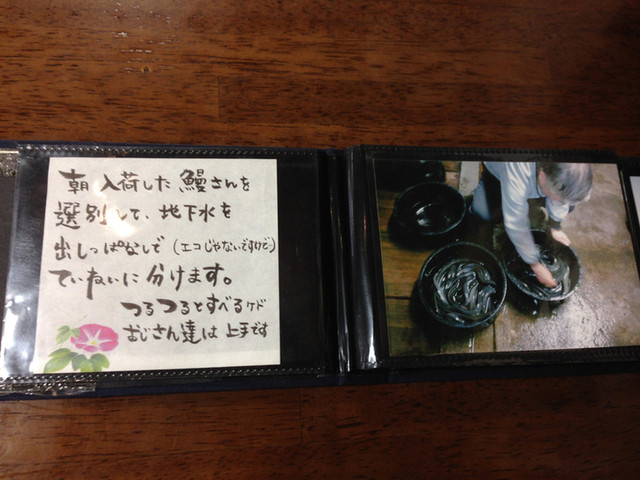 朝 入荷した 鰻さんを
選別して、地下水を
出しっぱなしで (エコじゃないですけど)
ていねいに 分けます。
つるつるとすべるケド
おじさん達は 上手です